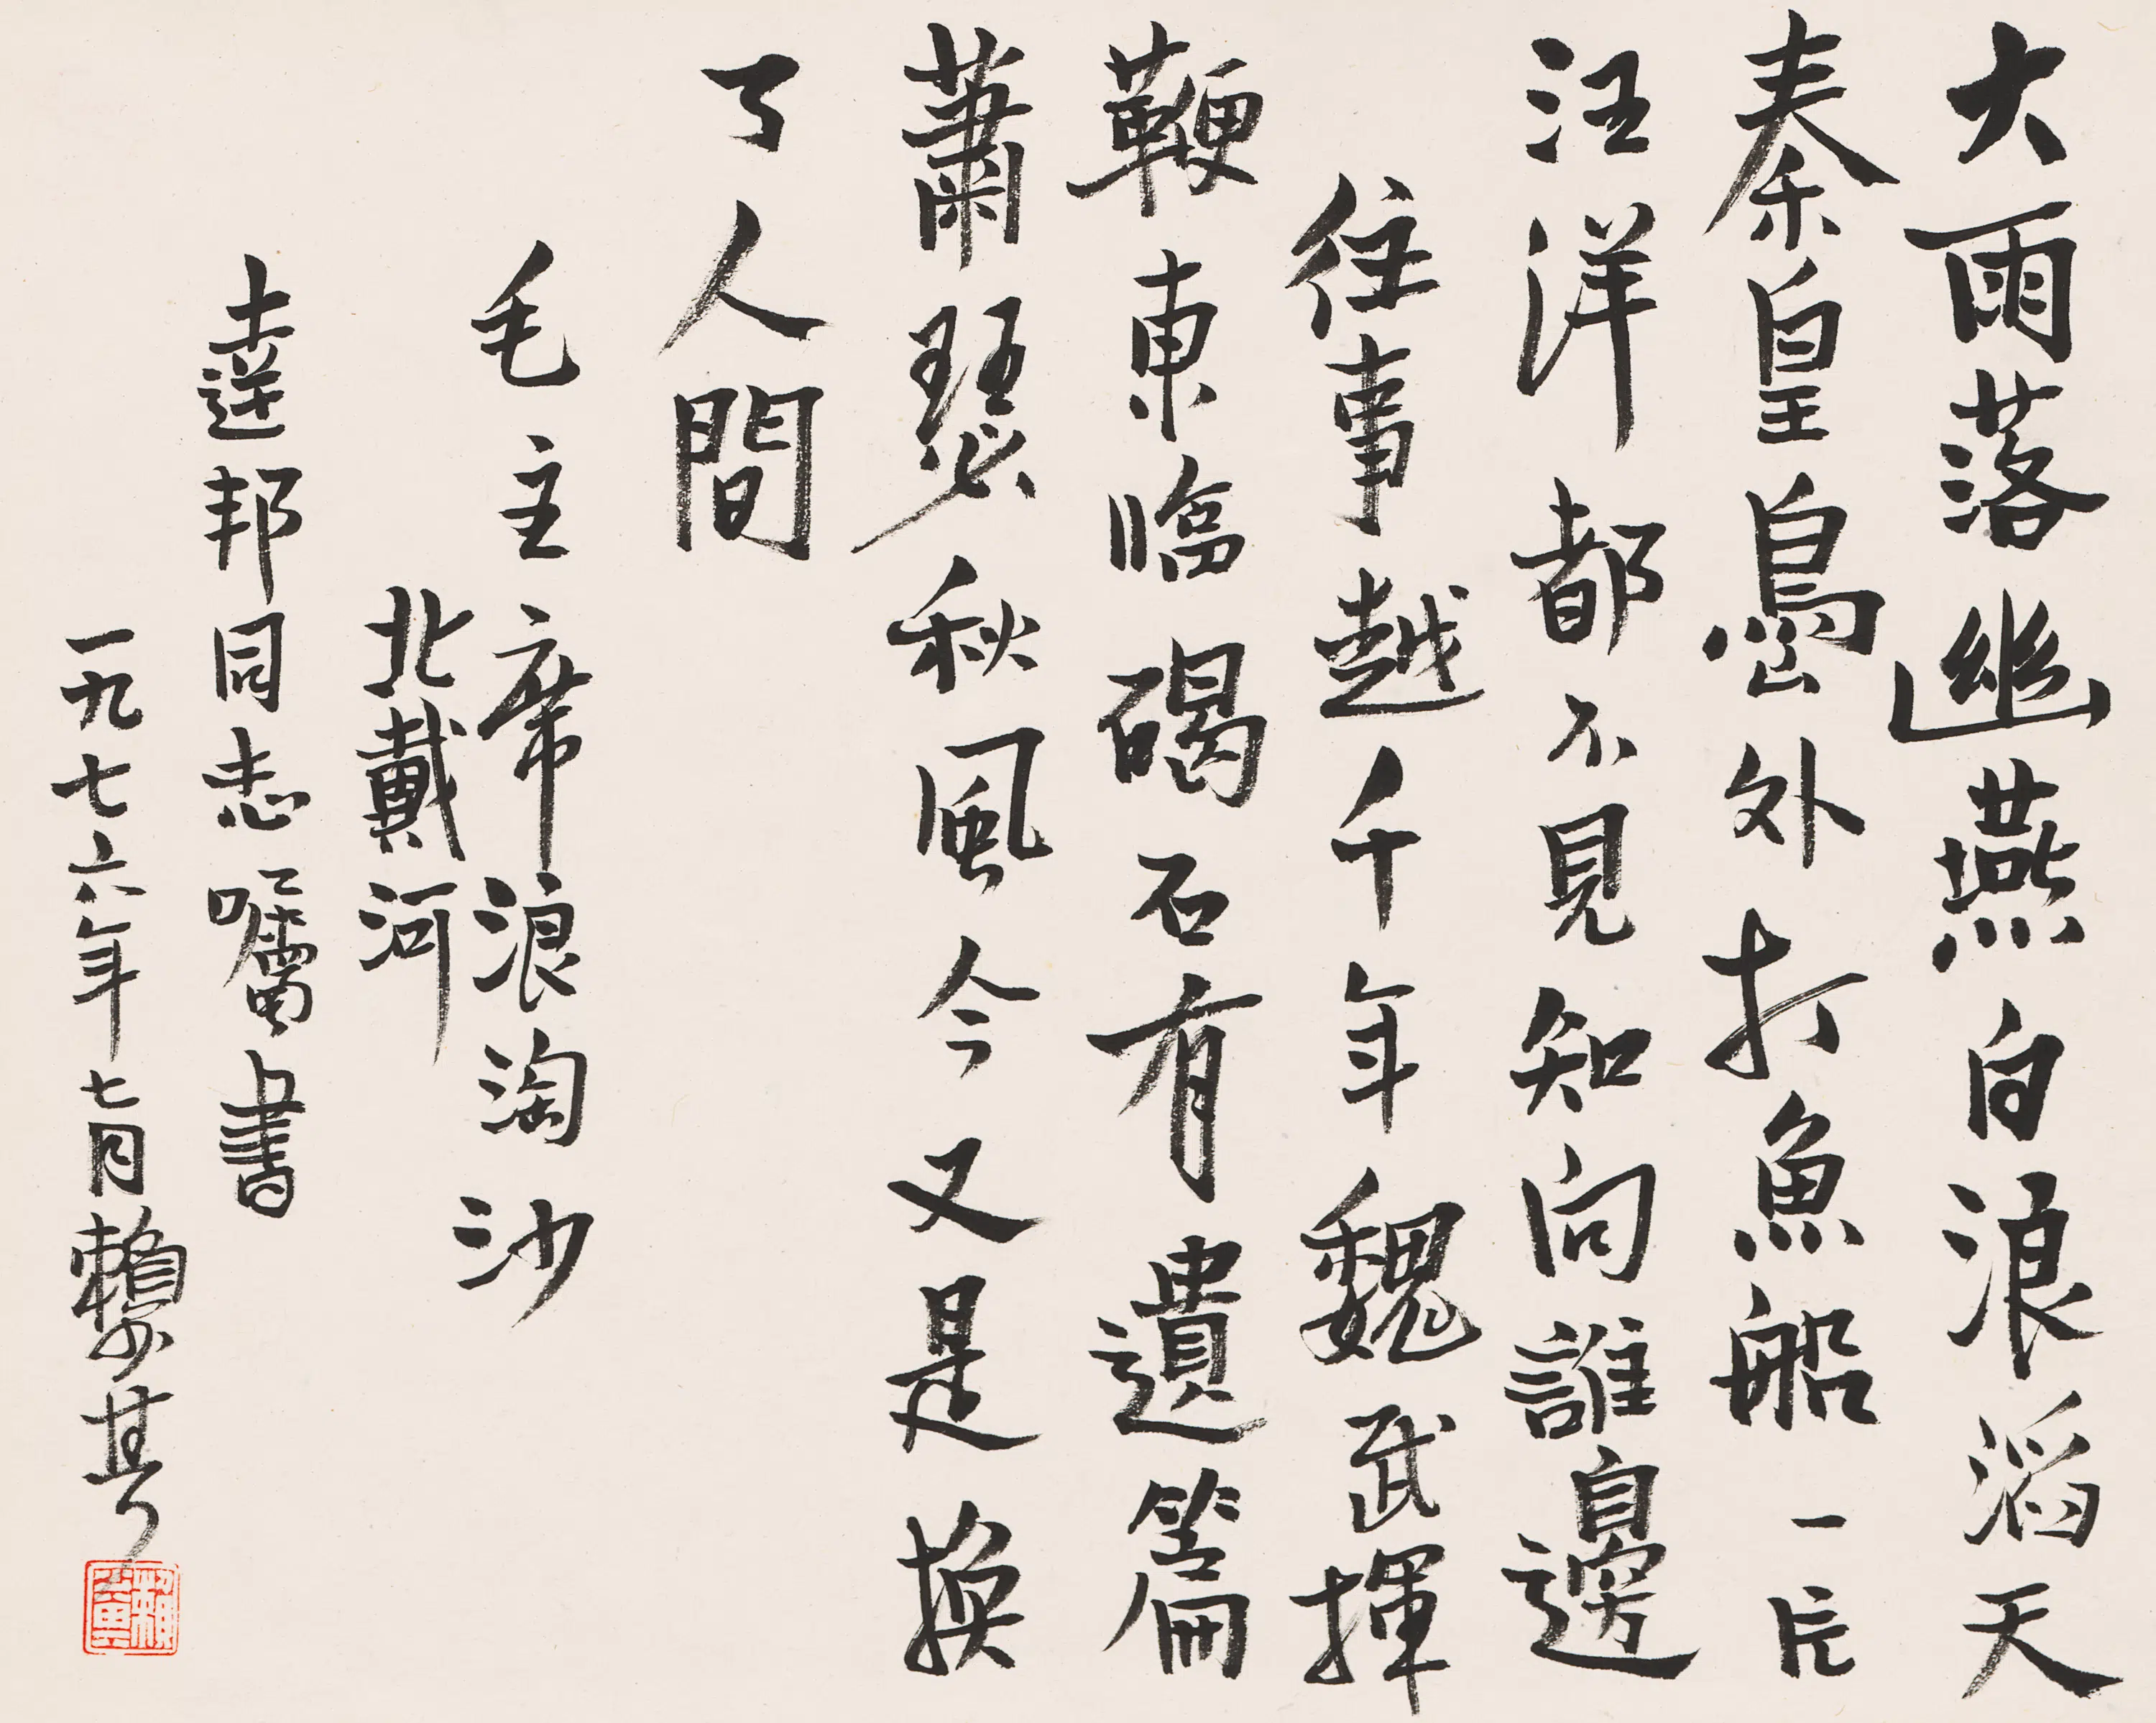 大雨落幽燕白浪滔天
秦皇島外打魚船一片
汪洋都不見知向誰邊
往事越千年魏武揮
鞭東臨碣石有遺篇
蕭瑟秋風今又是換
了人間
毛主席浪淘沙
北戴河
達邦同志囑書
一九七六年七月賴少其